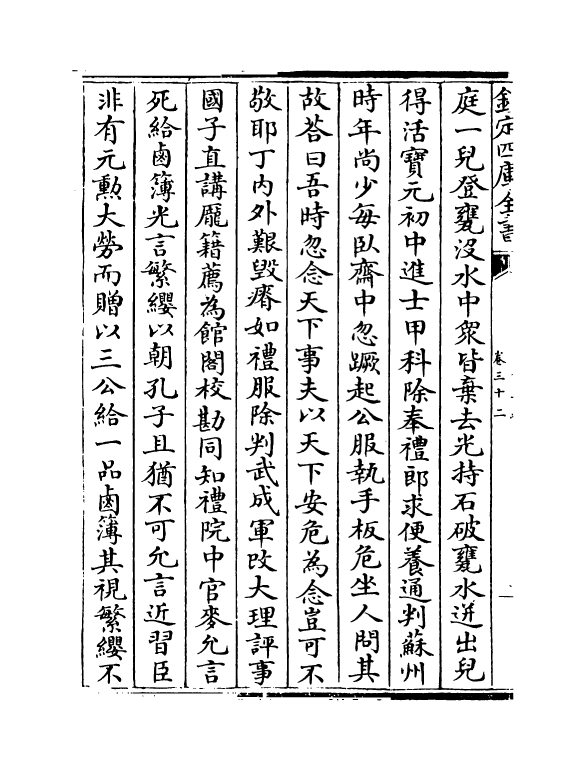 欽定四庫全書
卷三十二
庭一兒登甕沒水中衆皆棄去光持石破甕水迸出兒
得活寶元初中進士甲科除奉禮郎求便養通判蘇州
時年尚少每臥齋中忽蹶起公服執手板危坐人問其
故荅曰吾時忽念天下事夫以天下安危為念豈可不
敬耶丁内外艱毀瘠如禮服除判武成軍改大理評事
國子直講龎籍薦為館閣校勘同知禮院中官麥允言
死給鹵簿光言繁纓以朝孔子且猶不可允言近習臣
非有元勲大勞而贈以三公給一品鹵簿其視繁纓不